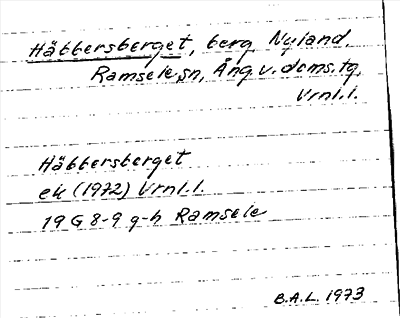 Häbbersberget, berg Nyland,
Ramsele sn, Ång. v. doms.tg,
Vrnl.l.
Häbbersberget
ek (1972) Vrnl.l.
19 G 8-9 g-h Ramsele
B.A.L. 1973